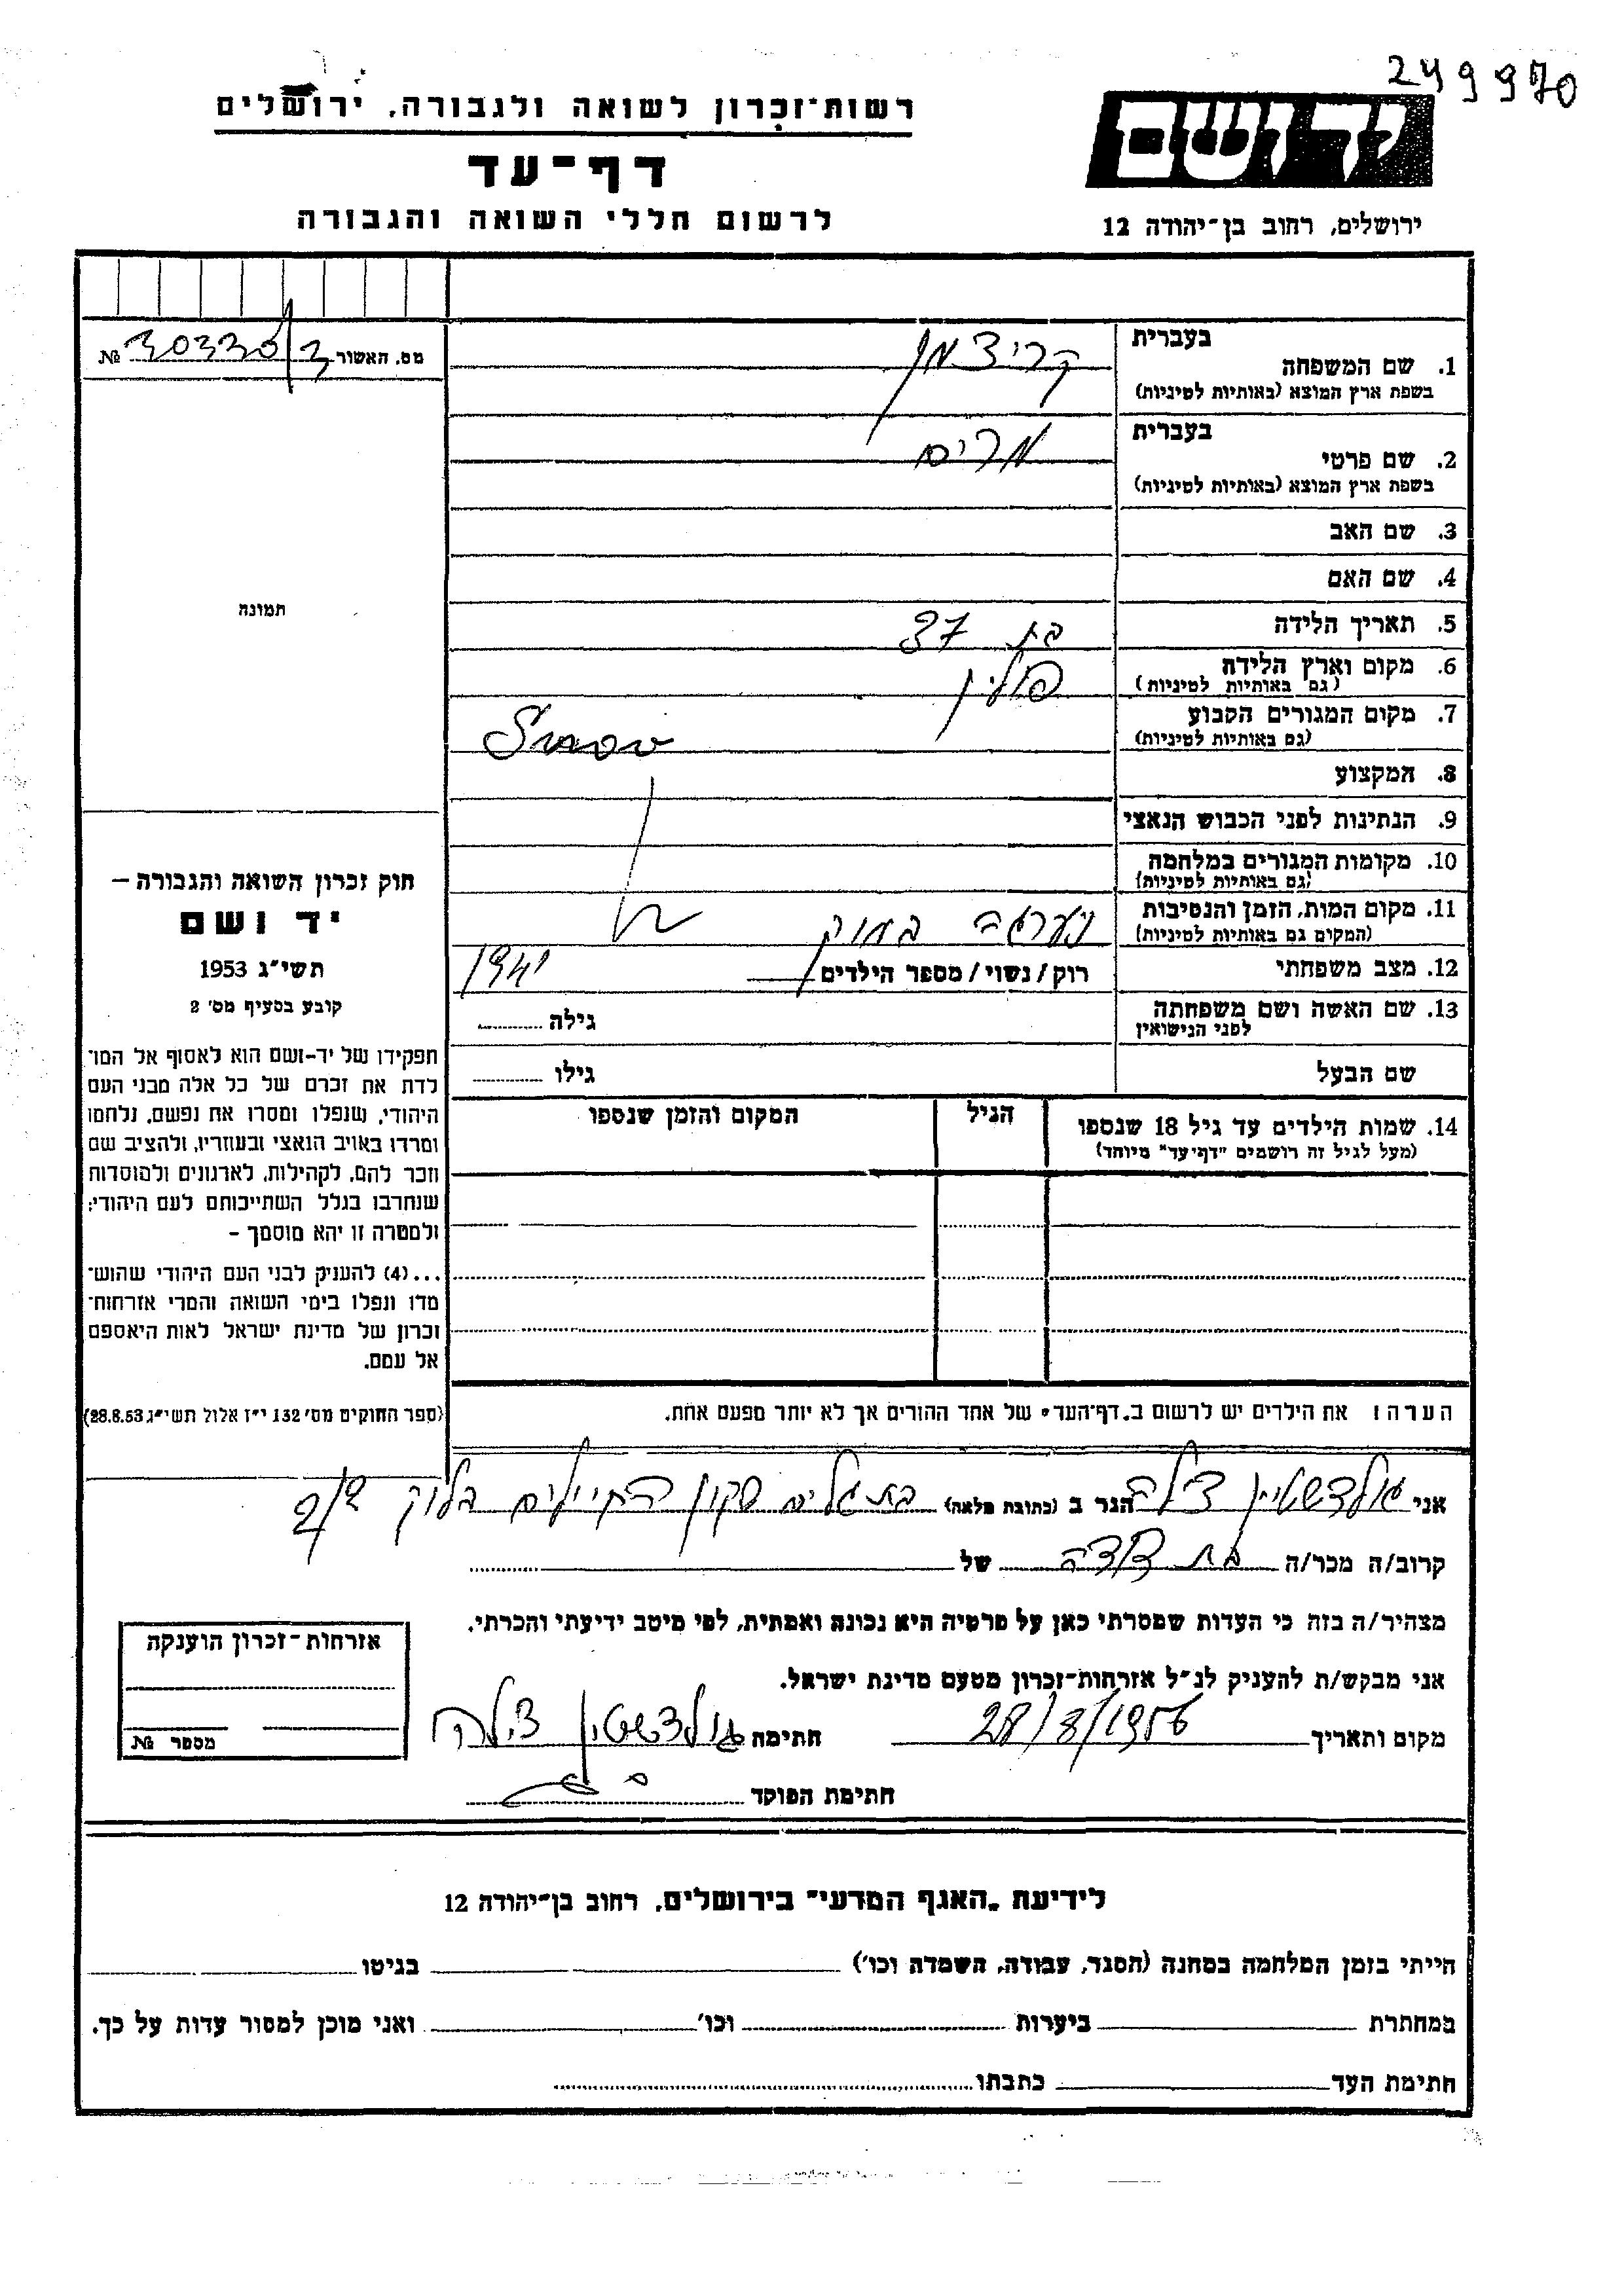 249970
רשות־זכרון לשואה ולגבורה, ירושלים
דף־עד
לרשום חללי השואה והגבורה
יד ושם
ירושלים, רחוב בן־יהודה 12
מס. האשור №
בעברית
1. שם המשפחה קריצמן
בשפת ארץ המוצא (באותיות לטיניות)
בעברית
2. שם פרטי מרים
בשפת ארץ המוצא (באותיות לטיניות)
3. שם האב
4. שם האם
5. תאריך הלידה בת 37
6. מקום וארץ הלידה פולין
(גם באותיות לטיניות)
7. מקום המגורים הקבוע
(גם באותיות לטיניות)
8. המקצוע
9. הנתינות לפני הכבוש הנאצי
10. מקומות המגורים במלחמה
(גם באותיות לטיניות)
11. מקום המות, הזמן והנסיבות
(המקום גם באותיות לטיניות)
12. מצב משפחתי רוק/נשוי/מספר הילדים 1941
13. שם האשה ושם משפחתה גילה
לפני הנישואין
שם הבעל גילו
14. שמות הילדים עד גיל 18 שנספו הגיל המקום והזמן שנספו
(מעל לגיל זה רושמים "דף־עד" מיוחד)
הערה: את הילדים יש לרשום ב„דף־העד" של אחד ההורים אך לא יותר מפעם אחת.
תמונה
חוק זכרון השואה והגבורה –
יד ושם
תשי"ג 1953
קובע בסעיף מס' 2
תפקידו של יד-ושם הוא לאסוף אל המו־
לדת את זכרם של כל אלה מבני העם
היהודי, שנפלו ומסרו את נפשם, נלחמו
ומרדו באויב הנאצי ובעוזריו, ולהציב שם
וזכר להם, לקהילות, לארגונים ולמוסדות
שנחרבו בגלל השתייכותם לעם היהודי;
ולמטרה זו יהא מוסמך –
...(4) להעניק לבני העם היהודי שהוש־
מדו ונפלו בימי השואה והמרי אזרחות־
זכרון של מדינת ישראל לאות היאספם
אל עמם.
(ספר החוקים מס' 132 י"ז אלול תשי"ג 28.8.53)
אני גולדשטיין צילה הגר ב (כתובת מלאה) בת גלים שכון החיילים בלוק
קרוב/ה מכר/ה בת דודה של
מצהיר/ה בזה כי העדות שמסרתי כאן על פרטיה היא נכונה ואמתית, לפי מיטב ידיעתי והכרתי.
אני מבקש/ת להעניק לנ"ל אזרחות־זכרון מטעם מדינת ישראל.
מקום ותאריך 28/8/1956 חתימה גולדשטיין צילה
חתימת הפוקד
אזרחות־זכרון הוענקה
מספר №
לידיעת „האגף המדעי" בירושלים, רחוב בן־יהודה 12
הייתי בזמן המלחמה במחנה (הסגר, עבודה, השמדה וכו') בגיטו
במחתרת ביערות וכו' ואני מוכן למסור עדות על כך.
חתימת העד כתבתו